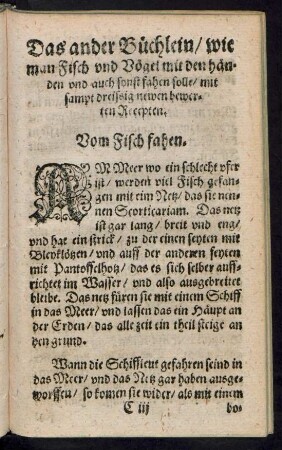 Das ander Büchlein/ wie
man Fisch vnd Vögel mit den hän-
den vnd auch sonst fahen solle/ mit
sampt dreissig newen bewer-
ten Recepten.
Vom Fisch fahen.
AM Meer wo ein schlecht vfer
ist/ werden viel Fisch gefan-
gen mit eim Netz/ das sie nen-
nen Scorticariam. Das netz
ist gar lang/ breit vnd eng/
vnd hat ein strick/ zu der einen seyten mit
Bleyklötzen/ vnd auff der anderen seyten
mit Pantoffelholtz/ das es sich selber auff-
richtet im Wasser/ vnd also ausgebreitet
bleibe. Das netz füren sie mit einem Schiff
in das Meer/ vnd lassen das ein Häupt an
der Erden/ das alle zeit ein theil steige an
den grund.
Wann die Schiffleut gefahren seind in
das Meer/ vnd das Netz gar haben ausge-
worffen/ so komen sie wider/ als mit einem
C iij
bo-